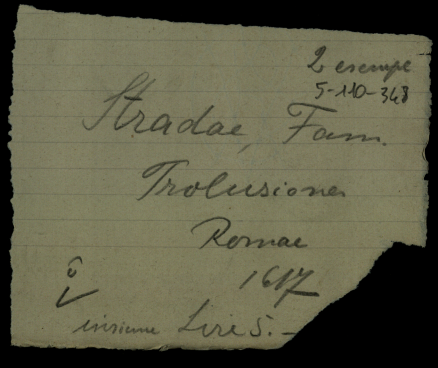 2 esempl
5-110-348
Stradae, Fam.
Prolusiones
Romae
1617
insieme Lire 5.-